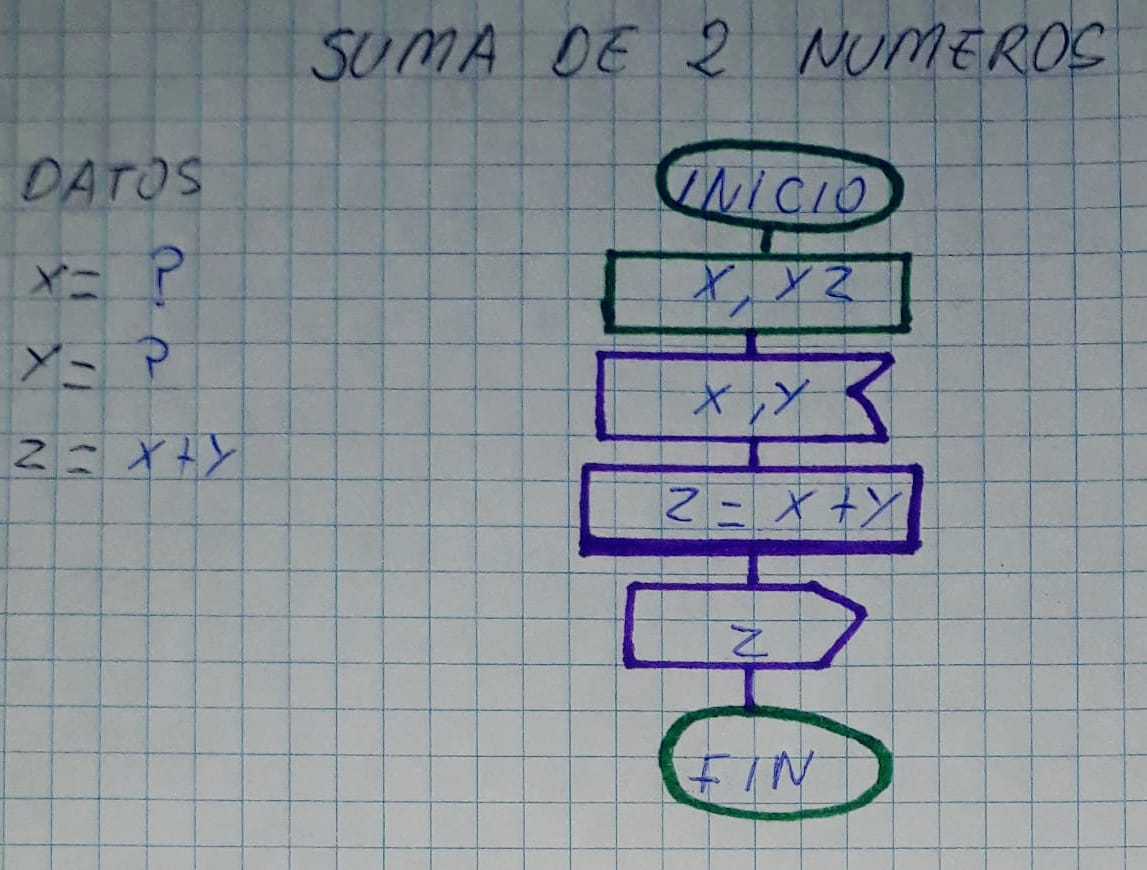 SUMA DE 2 NUMEROS
DATOS
X= ?
Y= ?
Z= X+Y
INICIO
X, Y Z
X, Y
Z= X+Y
Z
FIN